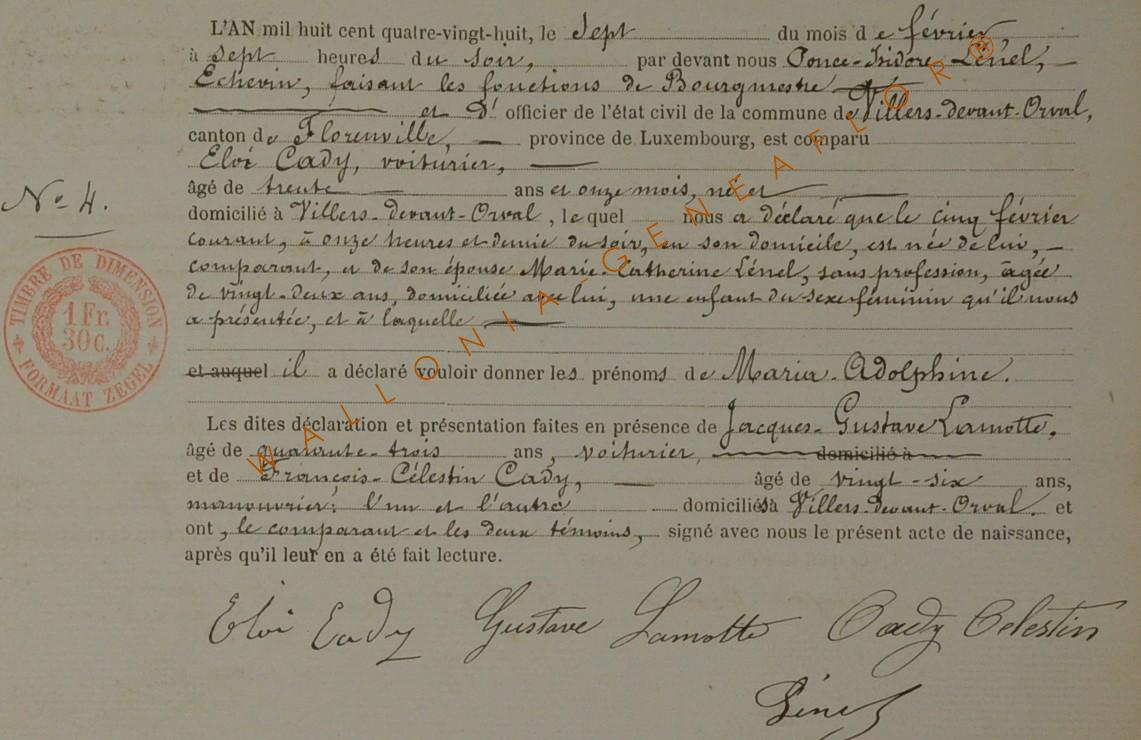 L'AN mil huit cent quatre-vingt-huit, le sept du mois de février,
à sept heures du soir, par devant nous Ponce-Isidore Lénel,
Echevin, faisant les fonctions de Bourgmestre
et d' officier de l'état civil de la commune de Villers-devant-Orval,
canton de Florenville, province de Luxembourg, est comparu
Eloi Cady, voiturier,
âgé de trente ans et onze mois, né et
domicilié à Villers-devant-Orval, le quel nous a déclaré que le cinq février
courant, à onze heures et demie du soir, en son domicile, est née de lui,
comparant, et de son épouse Marie-Catherine Lénel, sans profession, âgée
de vingt-deux ans, domiciliée avec lui, une enfant du sexe féminin qu'il nous
a présentée, et à laquelle
et auquel il a déclaré vouloir donner les prénoms de Maria-Adolphine.
Les dites déclaration et présentation faites en présence de Jacques-Gustave Lamotte,
âgé de quarante-trois ans, voiturier, domicilié à
et de François-Célestin Cady, âgé de vingt-six ans,
manouvrier; l'un et l'autre domiciliés à Villers-devant-Orval. et
ont, le comparant et les deux témoins, signé avec nous le présent acte de naissance,
après qu'il leur en a été fait lecture.
No 4.
TIMBRE DE DIMENSION
1 Fr.
30 c.
FORMAAT ZEGEL
Eloi Cady Gustave Lamotte Cady Celestin
Lénel
WALLONIA-GENEAFLOR®